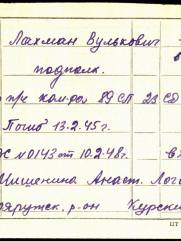 Лахман Вулькович
подполк.
пре ком-ра 29 СП 23 СД
Погиб 13.2.45 г.
№ 0143 от 10.2.48 г.
Мишенина Анаст.
р-он Курск